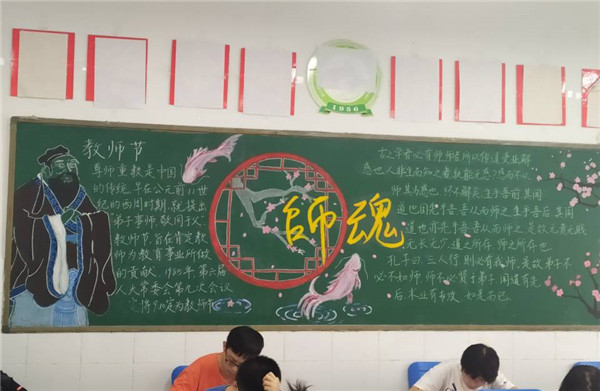 1956
教师节
尊师重教是中国
的传统,早在公元前11世
纪的西周时期,就提出
"弟子事师,敬同于父"
教师节,旨在肯定教
师为教育事业所做
的贡献,1985年,第六届
人大常委会第九次会议
将9.10定为教师节
師魂
古之学者必有师,师者所以传道受业解
惑也人非生而知之者孰能无惑?惑而不从
师其为惑也,终不解矣生乎吾前其闻
道也固先乎吾吾从而师之生乎吾后其闻
道也亦先乎吾吾从而师之是故无贵无贱
无长无少,道之所存,师之所存也
孔子曰:三人行,则必有我师,是故弟子不
必不如师,师不必贤于弟子,闻道有先
后,术业有专攻,如是而已.